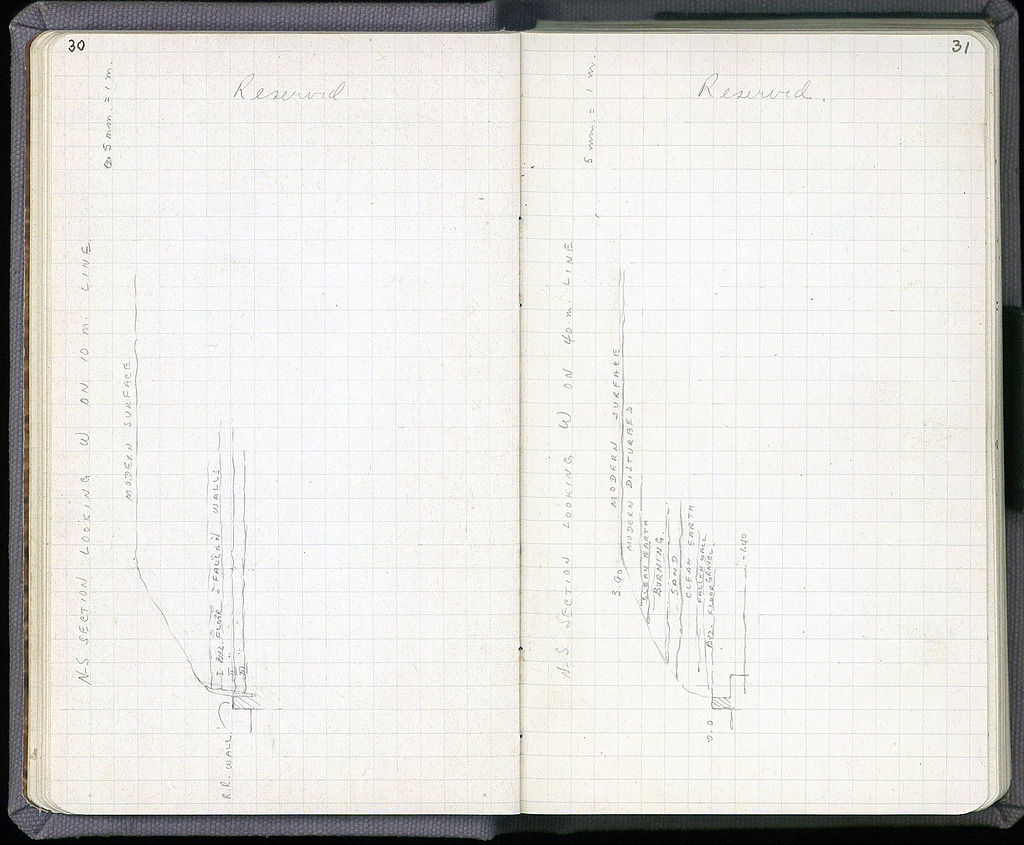 30
Reserved
@ 5 mm. = 1 m.
N-S SECTION LOOKING W ON 10 m. LINE
MODERN SURFACE
I BYZ. FLOOR + FALLEN WALLS
II "
III "
R.R. WALL
31
Reserved.
5 mm. = 1 m.
N-S. SECTION LOOKING W ON 40 m. LINE
MODERN SURFACE
MODERN DISTURBED
3.90
CLEAN EARTH
BURNING.
SAND
CLEAN EARTH
FALLEN WALL
BYZ. FLOOR GRAVEL.
-1.40
0.0